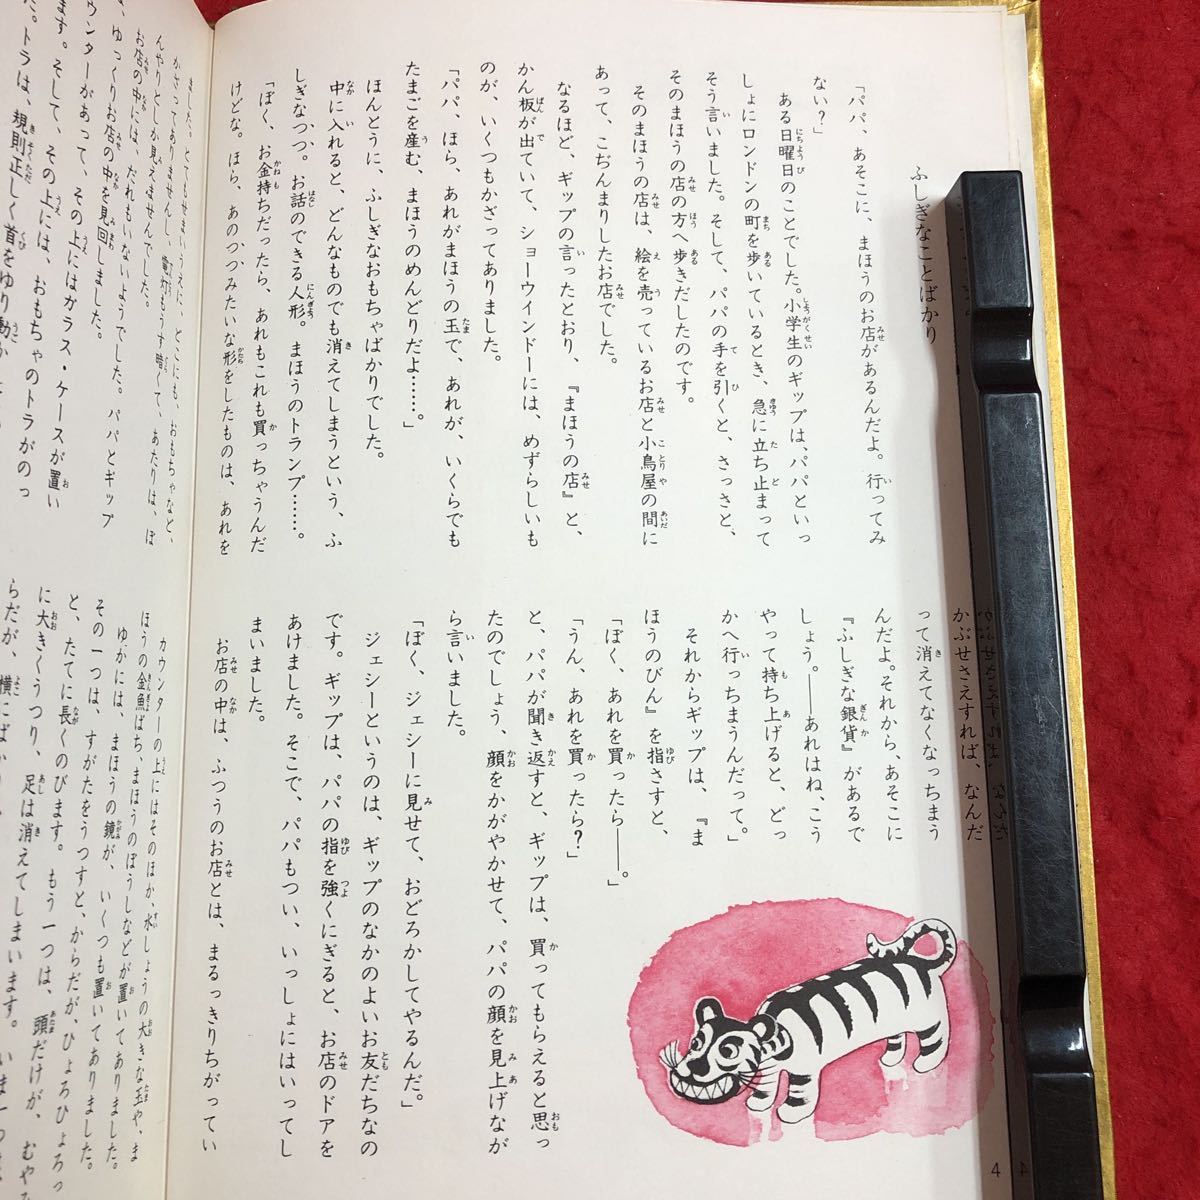 ふしぎなことばかり
「パパ、あそこに、まほうのお店があるんだよ。行ってみ
ない？」
ある日曜日のことでした。小学生のギップは、パパといっ
しょにロンドンの町を歩いているとき、急に立ち止まって
そう言いました。そして、パパの手を引くと、さっさと、
そのまほうの店の方へ歩きだしたのです。
そのまほうの店は、絵を売っているお店と小鳥屋の間に
あって、こぢんまりしたお店でした。
なるほど、ギップの言ったとおり、『まほうの店』と、
かん板が出ていて、ショーウインドーには、めずらしいも
のが、いくつもかざってありました。
「パパ、ほら、あれがまほうの玉で、あれが、いくらでも
たまごを産む、まほうのめんどりだよ……。」
ほんとうに、ふしぎなおもちゃばかりでした。
中に入れると、どんなものでも消えてしまうという、ふ
しぎなつつ。お話のできる人形。まほうのトランプ……。
「ぼく、お金持ちだったら、あれもこれも買っちゃうんだ
けどな。ほら、あのつつみたいな形をしたものは、あれを
かぶせさえすれば、なんだ
って消えてなくなっちまう
んだよ。それから、あそこに
『ふしぎな銀貨』があるで
しょう。――あれはね、こう
やって持ち上げると、どっ
かへ行っちまうんだって。」
それからギップは、『ま
ほうのびん』を指さすと、
「ぼく、あれを買ったら――。」
「うん、あれを買ったら？」
と、パパが聞き返すと、ギップは、買ってもらえると思っ
たのでしょう、顔をかがやかせて、パパの顔を見上げなが
ら言いました。
「ぼく、ジェシーに見せて、おどろかしてやるんだ。」
ジェシーというのは、ギップのなかのよいお友だちなの
です。ギップは、パパの指を強くにぎると、お店のドアを
あけました。そこで、パパもつい、いっしょにはいってし
まいました。
お店の中は、ふつうのお店とは、まるっきりちがってい
4
ました。とてもせまいうえに、どこにも、おもちゃなど、
かざってありませんし、電灯もうす暗くて、あたりは、ぼ
んやりとしか見えませんでした。
お店の中には、だれもいないようでした。パパとギップ
は、ゆっくりお店の中を見回しました。
カウンターがあって、その上にはガラス・ケースが置い
てあります。そして、その上には、おもちゃのトラがのっ
ていました。トラは、規則正しく首をゆり動か
カウンターの上にはそのほか、水しょうの大きな玉や、ま
ほうの金魚ばち、まほうのぼうしなどが置いてありました。
ゆかには、まほうの鏡が、いくつも置いてありました。
その一つは、すがたをうつすと、からだが、ひょろひょろっ
と、たてに長くのびます。もう一つは、頭だけが、むやみ
に大きくうつり、足は消えてしまいます。いま一つ
らだが、横にばか